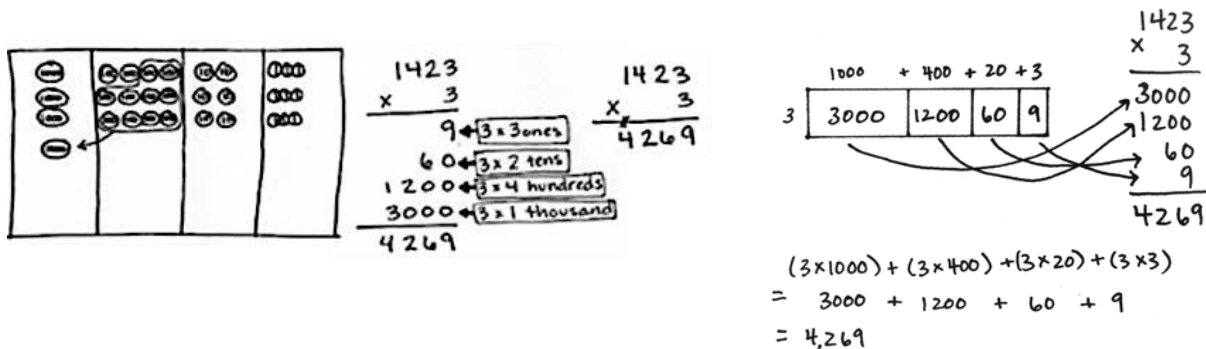 1423
x 3
9 3 x 3 ones
60 3 x 2 tens
1200 3 x 4 hundreds
3000 3 x 1 thousand
4269
1423
x 3
4269
1000 + 400 + 20 + 3
3 3000 1200 60 9
1423
x 3
3000
1200
60
9
4269
(3x1000) + (3x400) + (3x20) + (3x3)
= 3000 + 1200 + 60 + 9
= 4,269